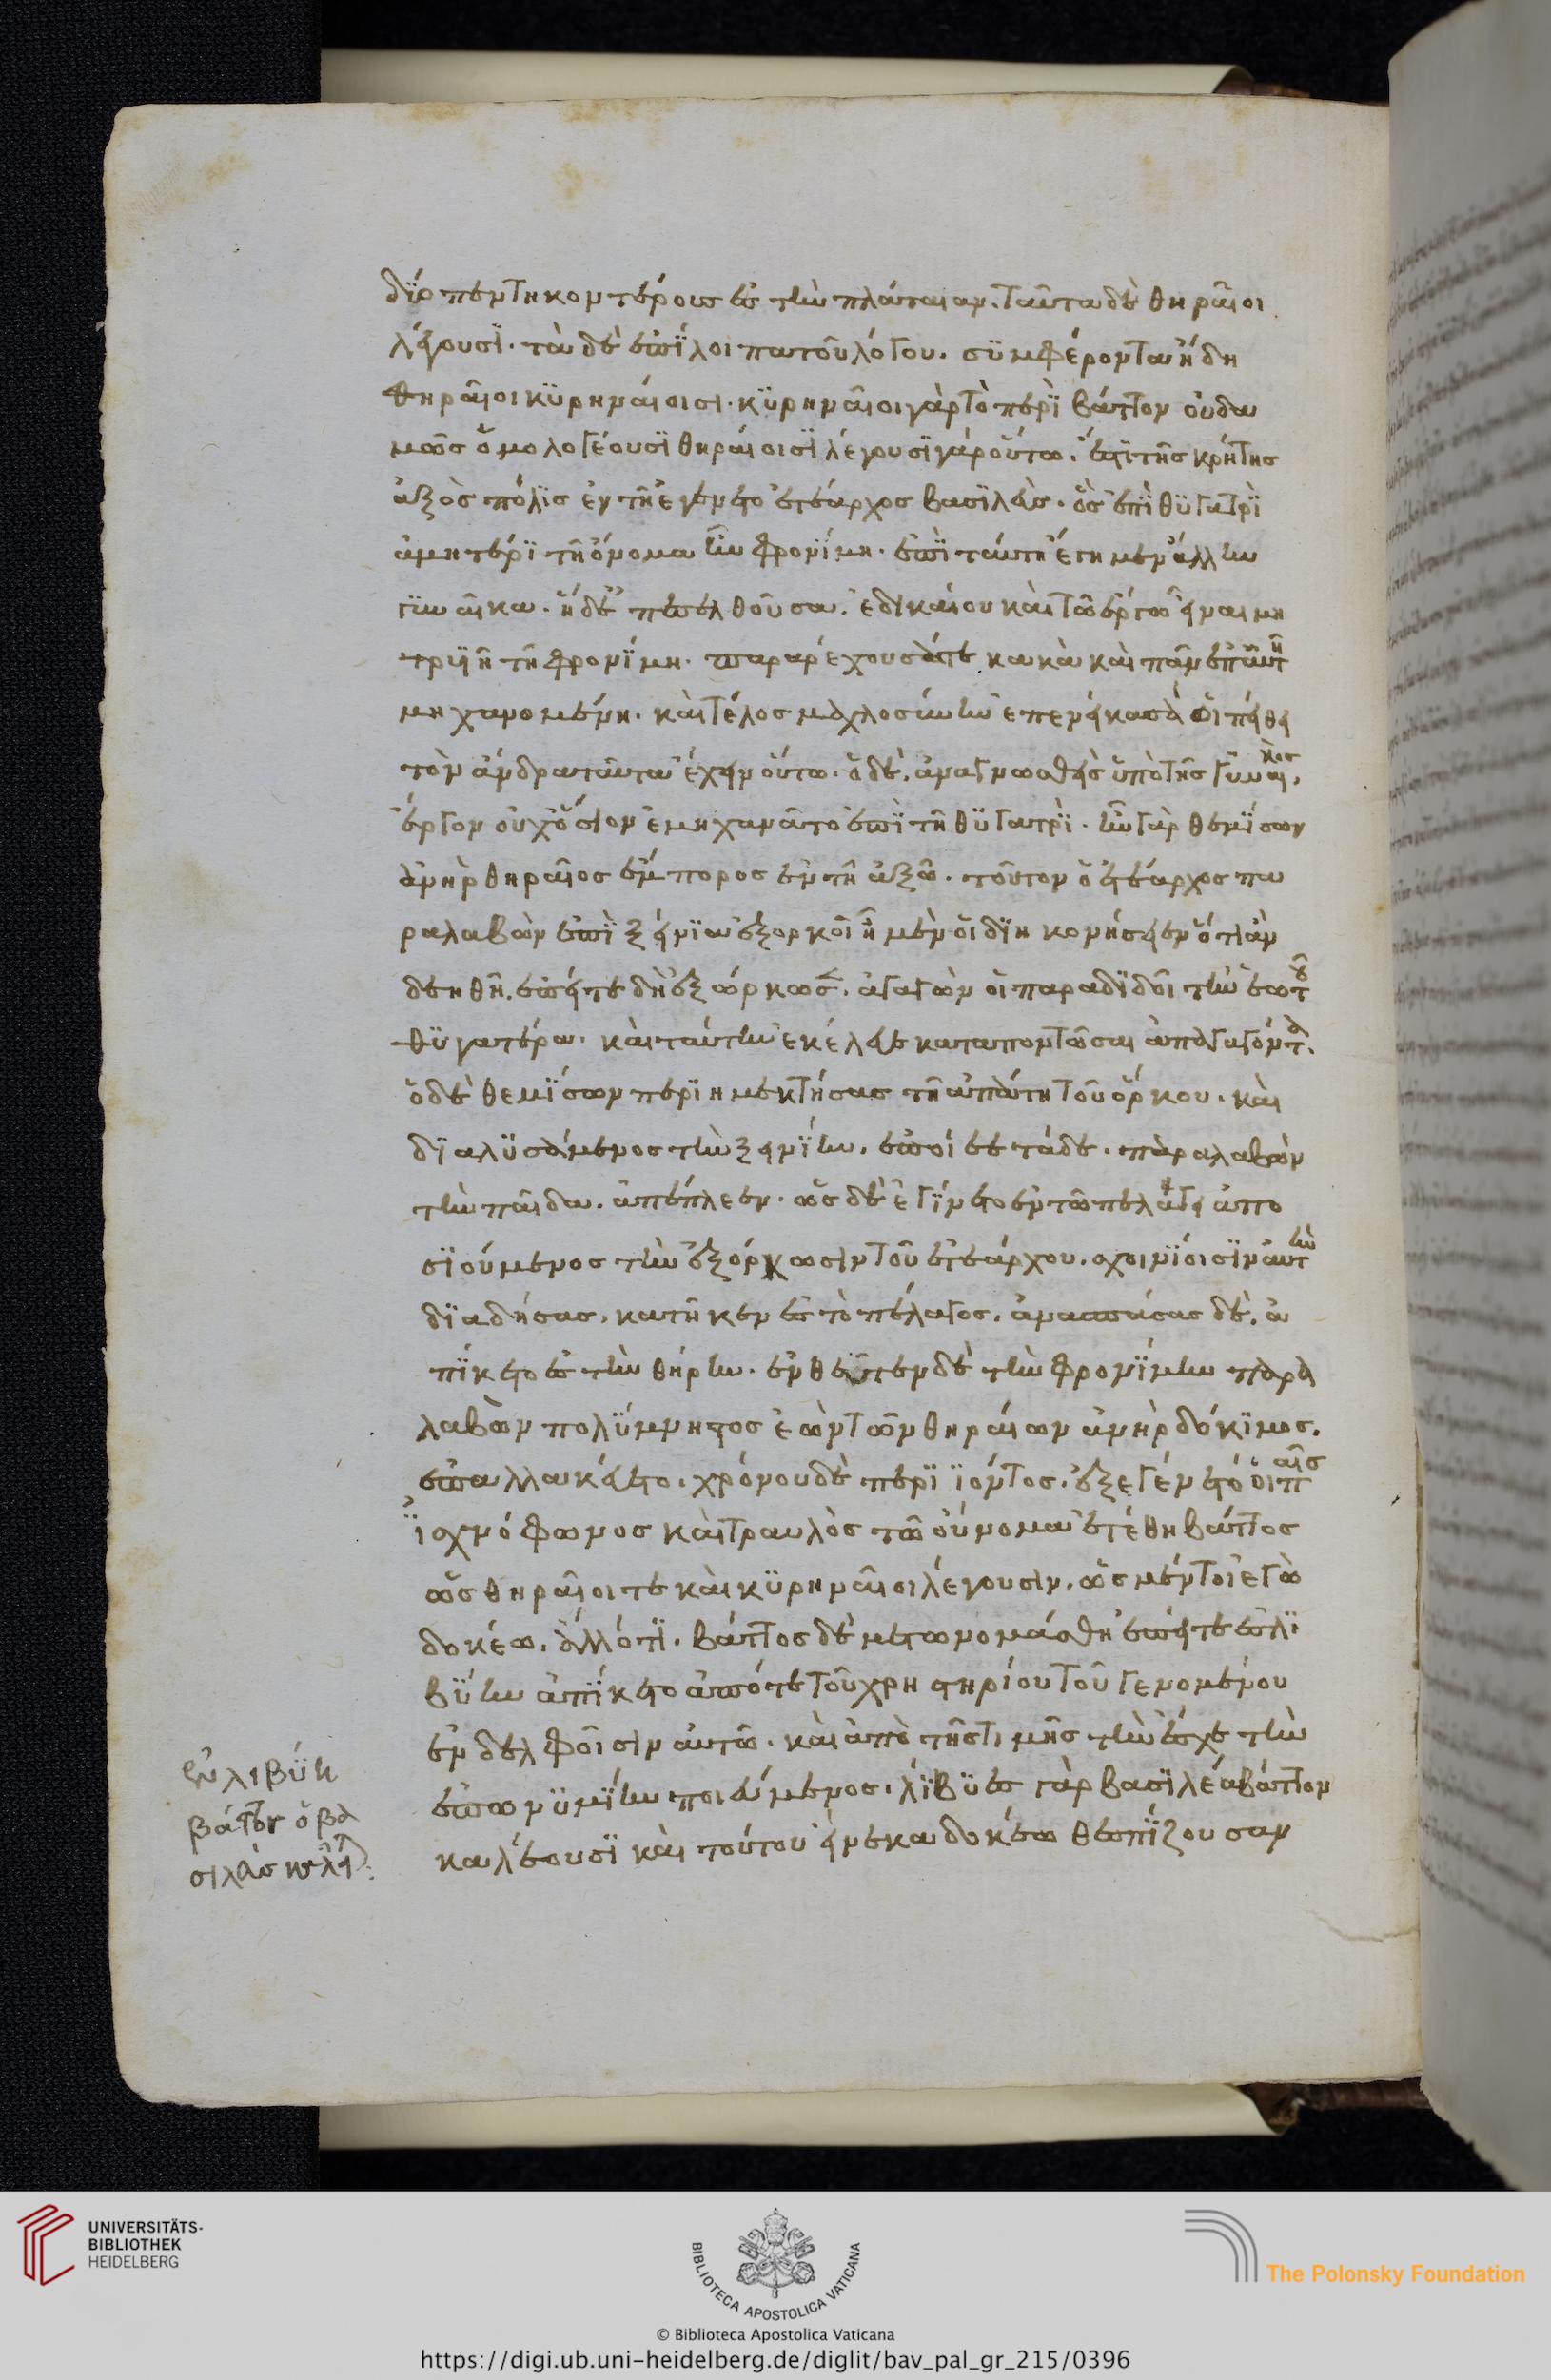 δύο πεντηκοντέρους ἐς τὴν πλάταιαν. ταῦτα δὲ θηραῖοι
λέγουσι. τὰ δὲ ἐπίλοιπα τοῦ λόγου. συμφέρονται ἤδη
θηραῖοι κυρηναίοισι. κυρηναῖοι γὰρ τὸ περὶ βάττον οὐδα
μῶς ὁμολογέουσι θηραίοισι λέγουσι γὰρ οὕτω. ἔστι τῆς κρήτης
ἀξὸς πόλις ἐν τῇ ἐγένετο ἐτέαρχος βασιλεύς. ὃς ἐπὶ θυγατρὶ
ἀμήτερι τῇ ὄνομα ἦν φρονίμη. ἐπὶ ταύτῃ ἔγημεν ἄλλην
γυναῖκα. ἡ δὲ ἐπεσελθοῦσα. ἐδικαίου καὶ τῷ ἔργῳ εἶναι μη
τρυιὴ τῇ φρονίμῃ. παραρέχουσά τε κακὰ καὶ πᾶν ἐπ' αὐτῇ
μηχανομένη. καὶ τέλος μαχλοσύνην ἐπενείκασά οἱ πείθει
τὸν ἄνδρα ταῦτα ἔχειν οὕτω. ὁ δὲ, ἀναγνωσθεὶς ὑπὸ τῆς γυναικὸς,
ἔργον οὐχ ὅσιον ἐμηχανᾶτο ἐπὶ τῇ θυγατρὶ. ἦν γὰρ θεμίσων
ἀνὴρ θηραῖος ἔμπορος ἐν τῇ ἀξῷ. τοῦτον ὁ ἐτέαρχος πα
ραλαβὼν ἐπὶ ξείνια ἐξορκοῖ ἦ μέν οἱ διηκονήσειν ὅτι ἂν
δεηθῇ. ἐπείτε δὴ ἐξώρκωσε. ἀγαγὼν οἱ παραδιδοῖ τὴν ἑωυτοῦ
θυγατέρα. καὶ ταύτην ἐκέλευε καταποντῶσαι ἀπαγαγόντα.
ὁ δὲ θεμίσων περιημεκτήσας τῇ ἀπάτῃ τοῦ ὅρκου. καὶ
διαλυσάμενος τὴν ξεινίην. ἐποίεε τάδε. παραλαβὼν
τὴν παῖδα. ἀπέπλεεν. ὡς δὲ ἐγίνετο ἐν τῷ πελάγει ἀπο
σιούμενος τὴν ἐξόρκωσιν τοῦ ἐτεάρχου. σχοινίοισιν αὐτὴν
διαδήσας, κατῆκεν ἐς τὸ πέλαγος. ἀνασπάσας δὲ, ἀ
πίκετο ἐς τὴν θήρην. ἐνθεῦτεν δὲ τὴν φρονίμην παρα
λαβὼν πολύμνητος ἐὼν τῶν θηραίων ἀνὴρ δόκιμος.
ἐπαλλακεύετο. χρόνου δὲ περιϊόντος. ἐξεγένετό οἱ παῖς
ἰσχνόφωνος καὶ τραυλὸς τῷ οὔνομα ἐτέθη βάττος
ὡς θηραῖοί τε καὶ κυρηναῖοι λέγουσιν. ὡς μέντοι ἐγὼ
δοκέω. ἄλλό τι. βάττος δὲ μετωνομάσθη ἐπείτε ἐς λι
βύην ἀπίκετο ἀπό τε τοῦ χρηστηρίου τοῦ γενομένου
ἐν δελφοῖσιν αὐτῷ. καὶ ἀπὸ τῆς τιμῆς τὴν ἔσχε τὴν
ἐπωνυμίην ποιεύμενος. λίβυες γὰρ βασιλέα βάττον
καλέουσι καὶ τούτου εἵνεκα δοκέω θεσπίζουσαν